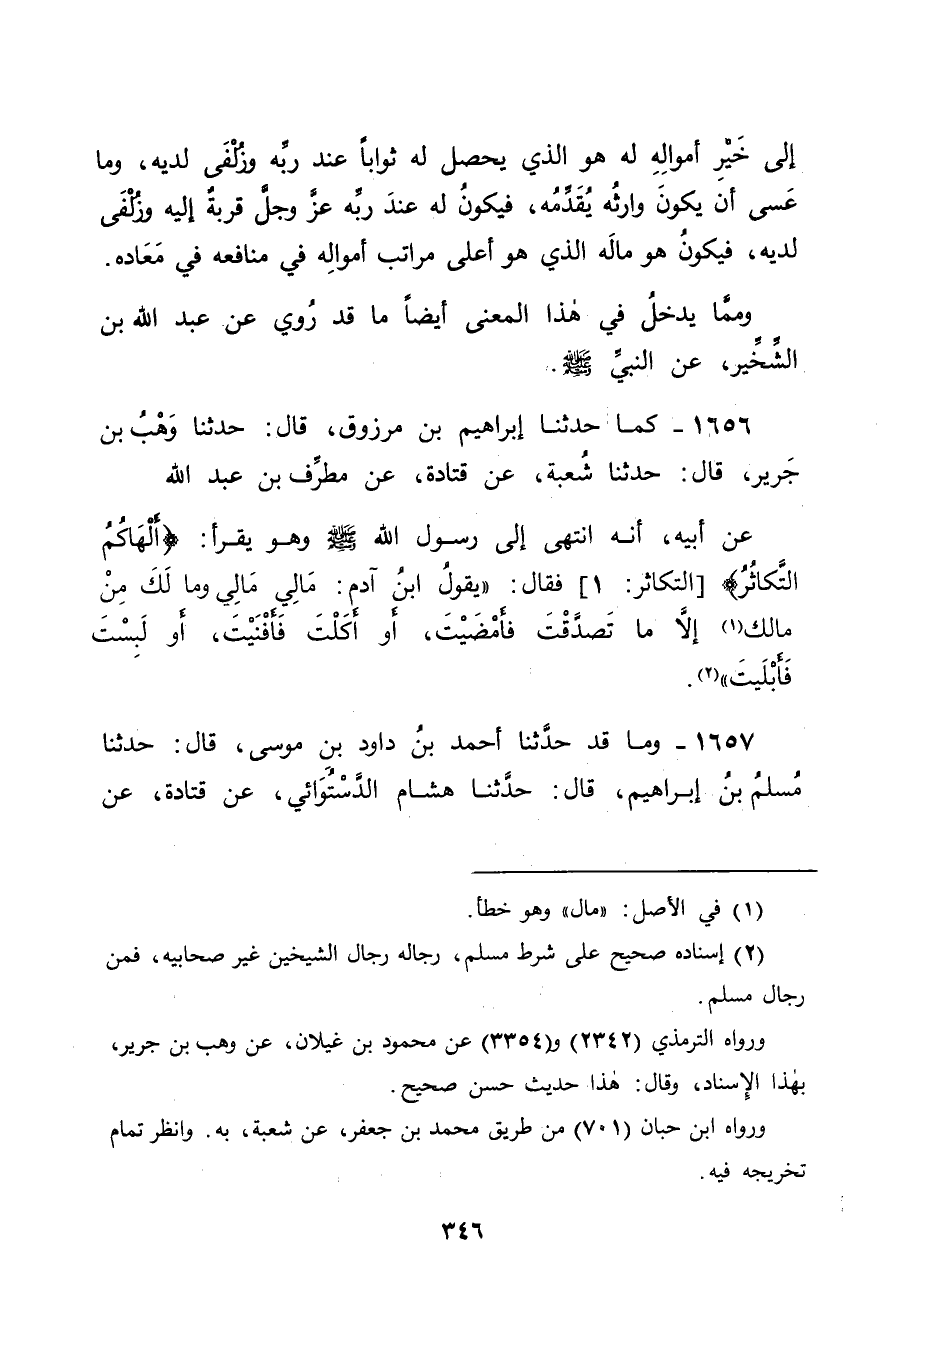 إلى خَيْرِ أموالِهِ له هو الذي يحصل له ثواباً عند ربِّه وزُلْفَى لديه، وما
عَسى أن يكونَ وارثُه يُقَدِّمُه، فيكونُ له عندَ ربِّه عزَّ وجلَّ قربةٌ إليه وزُلْفَى
لديه، فيكونُ هو مالَه الذي هو أعلى مراتب أموالِه في منافعه في مَعَاده.
وممَّا يدخلُ في هٰذا المعنى أيضاً ما قد رُوي عن عبد الله بن
الشِّخِّير، عن النبيِّ ﷺ.
١٦٥٦ - كما حدثنا إبراهيم بن مرزوق، قال: حدثنا وَهْبُ بن
جَرير، قال: حدثنا شُعبة، عن قتادة، عن مطرِّف بن عبد الله
عن أبيه، أنه انتهى إلى رسول الله ﷺ وهو يقرأ: ﴿أَلْهَاكُمُ
التَّكَاثُرُ﴾ [التكاثر: ١] فقال: «يقولُ ابنُ آدم: مَالِي مَالِي وما لَكَ مِنْ
مالك(١) إلَّا ما تَصدَّقْتَ فأَمْضَيْتَ، أو أَكَلْتَ فَأَفْنَيْتَ، أو لَبِسْتَ
فَأَبْلَيتَ»(٢).
١٦٥٧ - وما قد حدَّثنا أحمد بنُ داود بن موسى، قال: حدثنا
مُسلمُ بنُ إبراهيم، قال: حدَّثنا هشام الدَّسْتُوَائي، عن قتادة، عن
(١) في الأصل: «مال» وهو خطأ.
(٢) إسناده صحيح على شرط مسلم، رجاله رجال الشيخين غير صحابيه، فمن
رجال مسلم.
ورواه الترمذي (٢٣٤٢) و(٣٣٥٤) عن محمود بن غيلان، عن وهب بن جرير،
بهٰذا الإِسناد، وقال: هٰذا حديث حسن صحيح.
ورواه ابن حبان (٧٠١) من طريق محمد بن جعفر، عن شعبة، به. وانظر تمام
تخريجه فيه.
٣٤٦